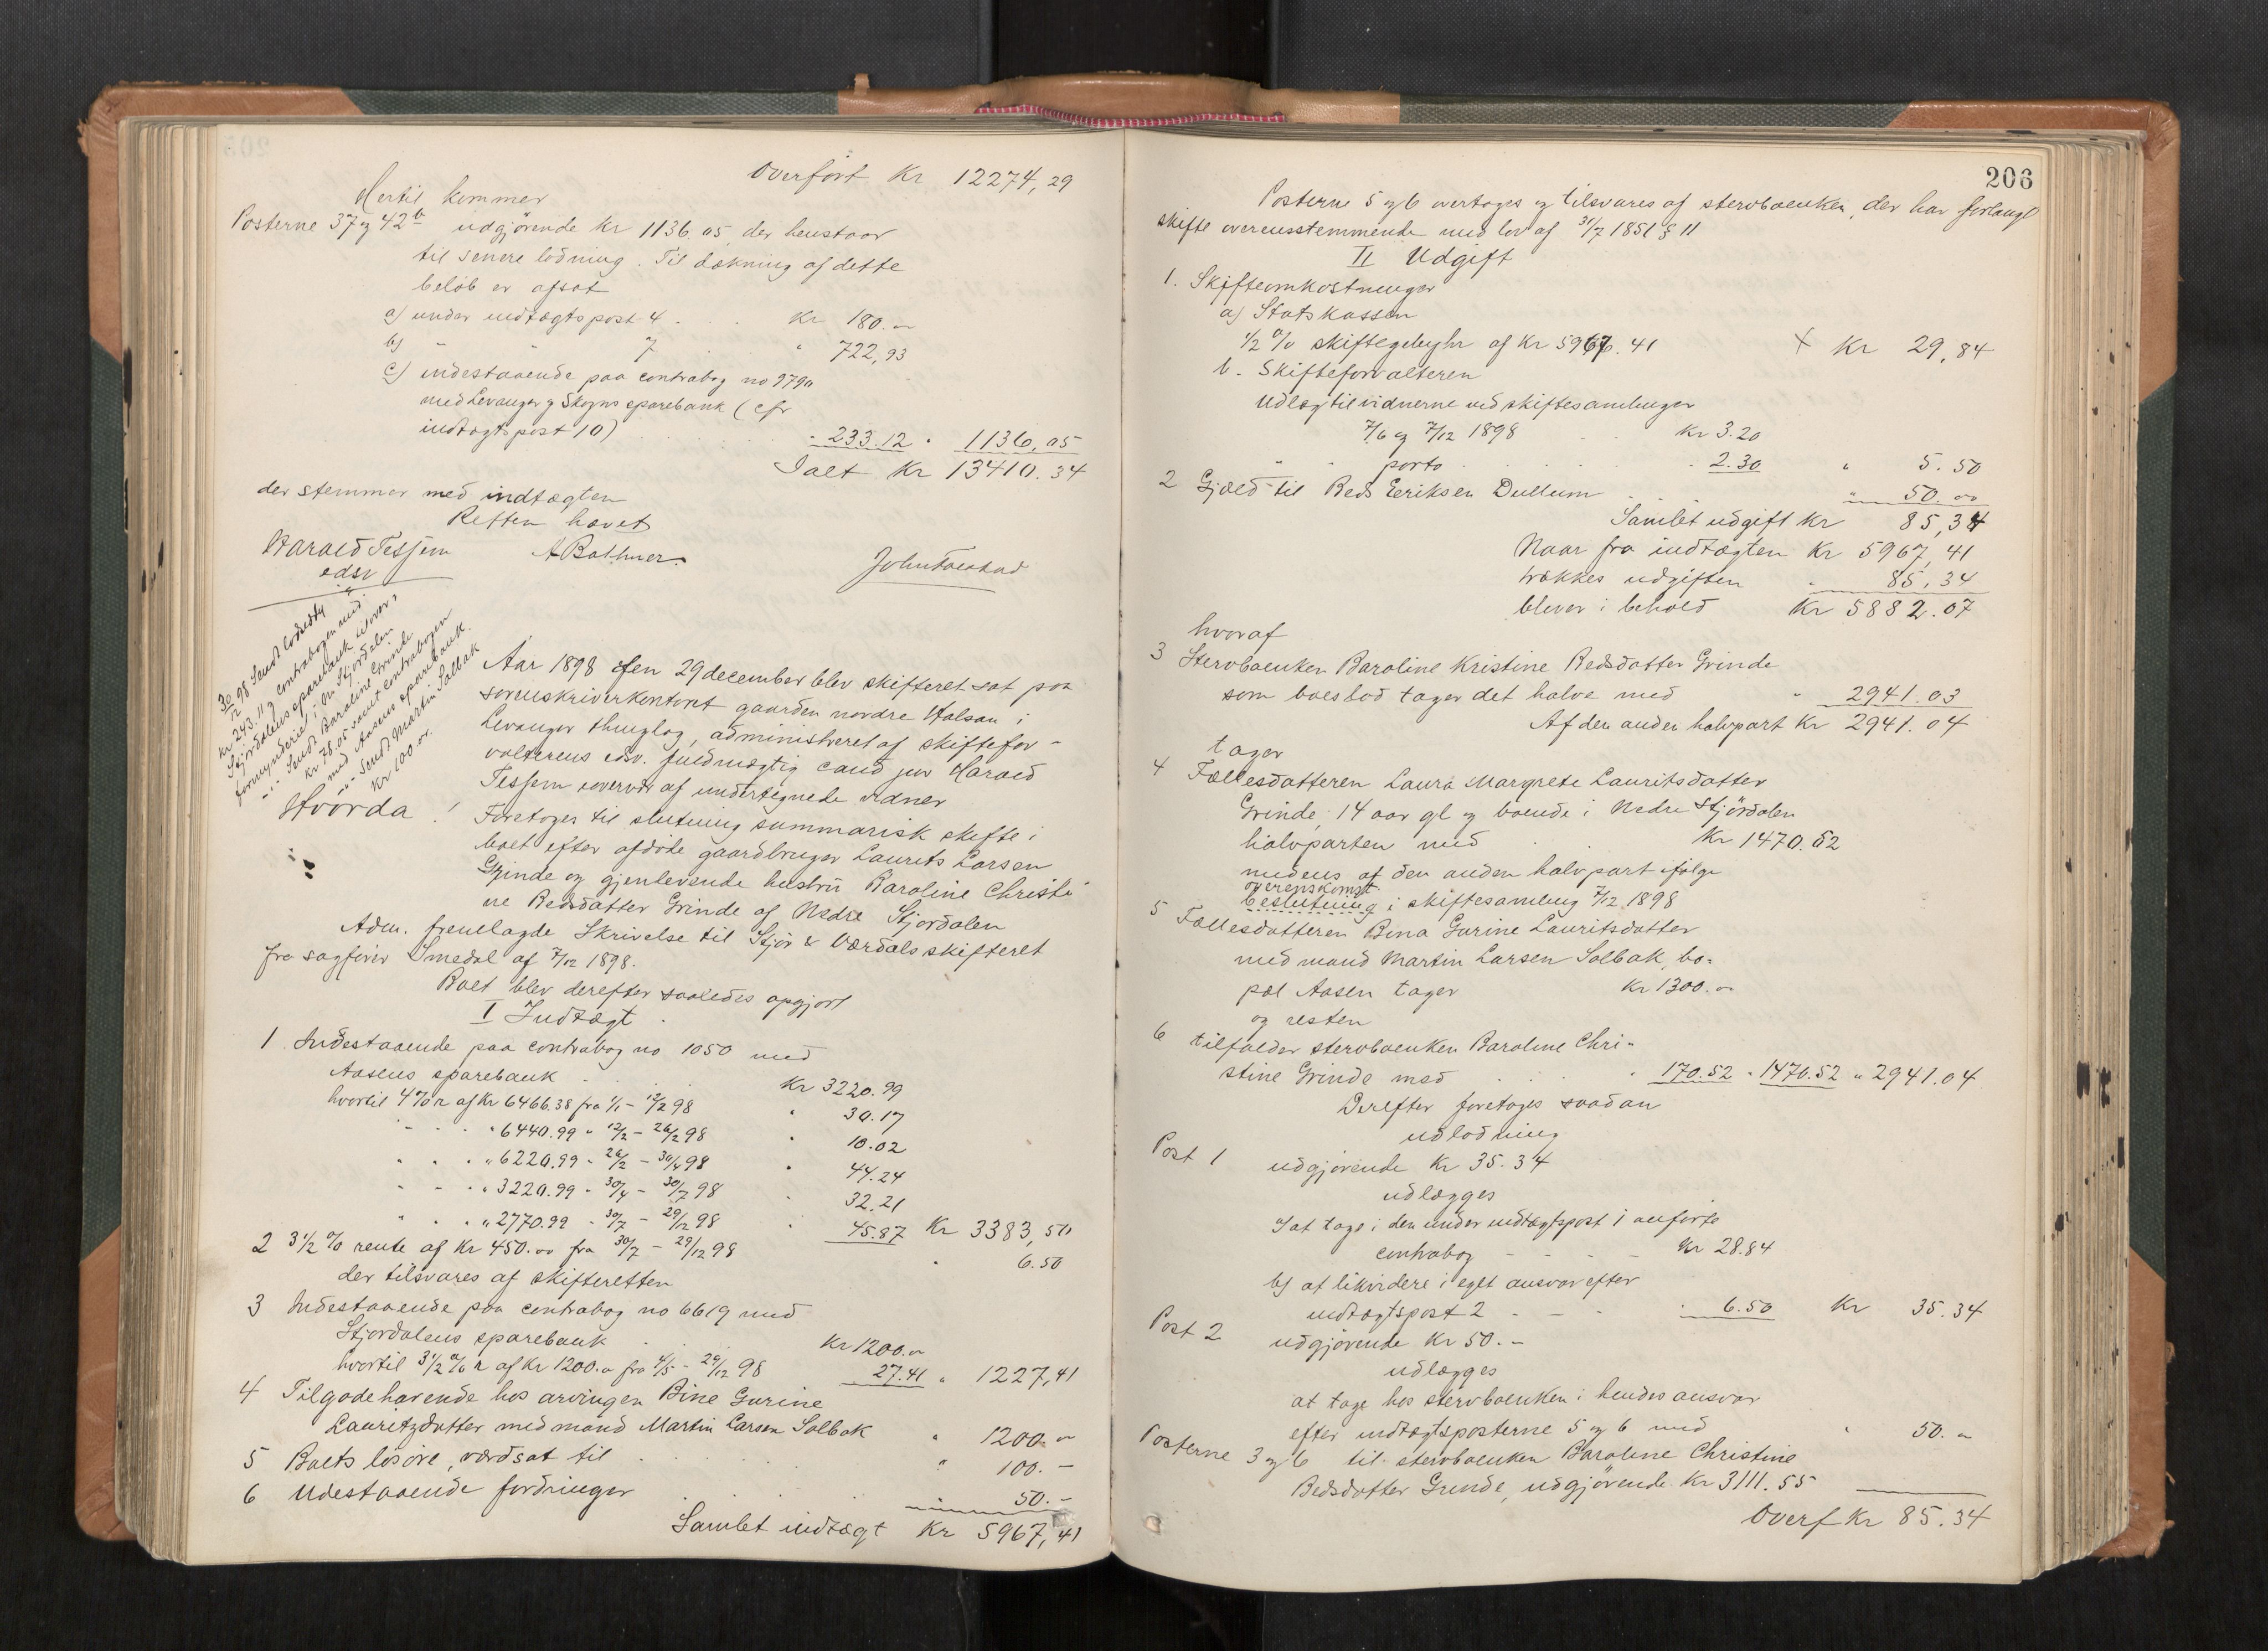 Overført Kr 12274,29
Hertil kommer
Posterne 37 og 42b udgjörende Kr 1136.05, der henstaar
til senere lodning. Til dækning af dette
belöb er afsat
a) under indtægtspost 4 . . Kr 180.00
b) " " 7 . " 722,93
c) indestaaende paa contrabog no 979a
med Levanger og Skogns sparebank (cfr
indtægtspost 10) . . . . . " 233.12 " 1136,05
Ialt Kr 13410.34
der stemmer med indtægten
Retten hævet
Harald Tessem A Bathner John
edsv
30/12 98 Sendt
Kr 243.11 og contrabogen med
Stjördalens sparebank
formynderiet i N. Stjördalen
-"- Sendt Baroline Grinde
Kr 78.05 samt contrabogen
med Aasens sparebank.
-"- Sendt Martin Solbak
Kr 100.00.
Aar 1898 den 29 december blev skifteret sat paa
sorenskriverkontoret gaarden nordre Halsan i
Levanger thinglag, administreret af skiftefor-
valterens edsv. fuldmægtig cand jur Harald
Tessem overvær af undertegnede vidner
Hvorda !
Foretoges til slutning summarisk skifte i
boet efter afdöde gaardbruger Laurits Larsen
Grinde og gjenlevende hustru Baroline Christi-
ne Bedsdatter Grinde af Nedre Stjordalen
Adm. fremlagde Skrivelse til Stjör & Værdals skifteret
fra sagförer Smedal af 7/12 1898.
Boet blev derefter saaledes opgjort
I Indtægt.
1 Indestaaende paa contrabog no 1050 med
Aasens sparebank . . . . Kr 3220.99
hvortil 4% r af Kr 6466.38 fra 1/1 - 12/2 98 " 30.17
- - . " 6440.99 " 12/2 - 26/2 98 " 10.02
" . . " 6220.99 - 26/2 - 30/4 98 " 44.24
" - - " 3220.99 - 30/4 - 30/7 98 " 32.21
" . . " 2770.99 - 30/7 - 29/12 98 " 45.87 Kr 3383,50
2 3 1/2 % rente af Kr 450.00 fra 30/7 - 29/12 98 " 6.50
der tilsvares af skifteretten
3 Indestaaende paa contrabog no 6619 med
Stjordalens sparebank . . Kr 1200.00
hvortil 3 1/2 % r af Kr 1200.00 fra 4/5 - 29/12 98 27.41 " 1227,41
4 Tilgodehavende hos arvingen Bine Gurine
Lauritzdatter med mand Martin Larsen Solbak " 1200.00
5 Boets lösöre, værdsat til . . . " 100.-
6 Udestaaende fordringer . . . " 50.-
Samlet indtægt Kr 5967,41
206
Posterne 5 og 6 overtages og tilsvares af stervboenken, der har forlangt
skifte overensstemmende med lov af 31/7 1851 § 11
II Udgift
1. Skifteomkostninger
a) Statskassen
1/2 % skiftegebyhr af Kr 5967.41 + Kr 29,84
b. Skifteforvalteren
Udlæg til vidnerne ved skiftesamlinger
7/6 og 7/12 1898 . . Kr 3.20
" " porto . . . . . 2.30 " 5.50
2 Gjæld til Beds Eeriksen Dullum . . " 50.00
Samlet udgift Kr 85,34
Naar fra indtægten Kr 5967,41
trækkes udgiften " 85.34
bliver i behold Kr 5882.07
hvoraf
3 Stervboenken Baroline Kristine Bedsdatter Grinde
som boeslod tager det halve med " 2941.03
Af den anden halvpart Kr 2941.04
tager
4 Fællesdatteren Laura Margrete Lauritsdatter
Grinde, 14 aar gl og boende i Nedre Stjördalen
halvparten med . . Kr 1470.52
medens af den anden halvpart ifölge
overenskomst
beslutning i skiftesamling 7/12 1898
5 Fællesdatteren Bina Gurine Lauritsdatter
med mand Martin Larsen Solbak, bo-
pæl Aasen tager Kr 1300.00
og resten
6 tilfalder stervboenken Baroline Chri-
stine Grinde med . . . " 170.52 " 1470.52 " 2941.04
Derefter foretoges saadan
udlodning
Post 1 udgjörende Kr 35.34
udlægges
a) at tage i den under indtægtspost 1 anförte
contrabog - - - - Kr 28.84
b) at likvidere i eget ansvar efter
indtægtspost 2 - - - . 6.50 Kr 35.34
Post 2 udgjörende Kr 50.-
udlægges
at tage hos stervboenken i hendes ansvar
efter indtægtsposterne 5 og 6 med " 50.00
Posterne 3 og 6 til stervboenken Baroline Christine
Bedsdatter Grinde, udgjörende Kr 3111.55
Overf Kr 85.34